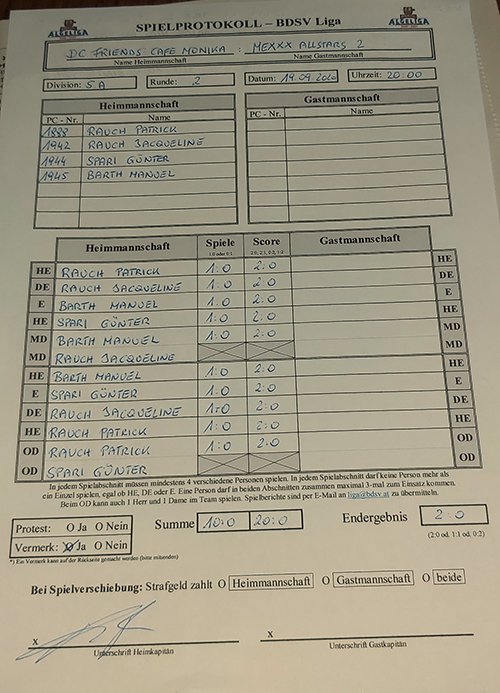 SPIELPROTOKOLL – BDSV Liga
DC FRIENDS CAFE MONIKA : MEXXX ALLSTARS 2
Name Heimmannschaft Name Gastmannschaft
Division: 5A Runde: 2 Datum: 19.09.2020 Uhrzeit: 20:00
Heimmannschaft Gastmannschaft
PC - Nr. Name PC - Nr. Name
1888 RAUCH PATRICK
1942 RAUCH JACQUELINE
1944 SPARI GÜNTER
1945 BARTH MANUEL
Heimmannschaft Spiele Score Gastmannschaft
1:0 oder 0:1 2:0, 2:1, 0:2, 1:2
HE RAUCH PATRICK 1:0 2:0 HE
DE RAUCH JACQUELINE 1:0 2:0 DE
E BARTH MANUEL 1:0 2:0 E
HE SPARI GÜNTER 1:0 2:0 HE
MD BARTH MANUEL 1:0 2:0 MD
MD RAUCH JACQUELINE MD
HE BARTH MANUEL 1:0 2:0 HE
E SPARI GÜNTER 1:0 2:0 E
DE RAUCH JACQUELINE 1:0 2:0 DE
HE RAUCH PATRICK 1:0 2:0 HE
OD RAUCH PATRICK 1:0 2:0 OD
OD SPARI GÜNTER OD
In jedem Spielabschnitt müssen mindestens 4 verschiedene Personen spielen. In jedem Spielabschnitt darf keine Person mehr als
ein Einzel spielen, egal ob HE, DE oder E. Eine Person darf in beiden Abschnitten zusammen maximal 3-mal zum Einsatz kommen.
Beim OD kann auch 1 Herr und 1 Dame im Team spielen. Spielberichte sind per E-Mail an liga@bdsv.at zu übermitteln.
Protest: O Ja O Nein Summe 10:0 20:0 Endergebnis 2:0
Vermerk: O Ja O Nein (2:0 od. 1:1 od. 0:2)
*) Ein Vermerk kann auf der Rückseite gemacht werden (bitte mitsenden)
Bei Spielverschiebung: Strafgeld zahlt O Heimmannschaft O Gastmannschaft O beide
X X
Unterschrift Heimkapitän Unterschrift Gastkapitän